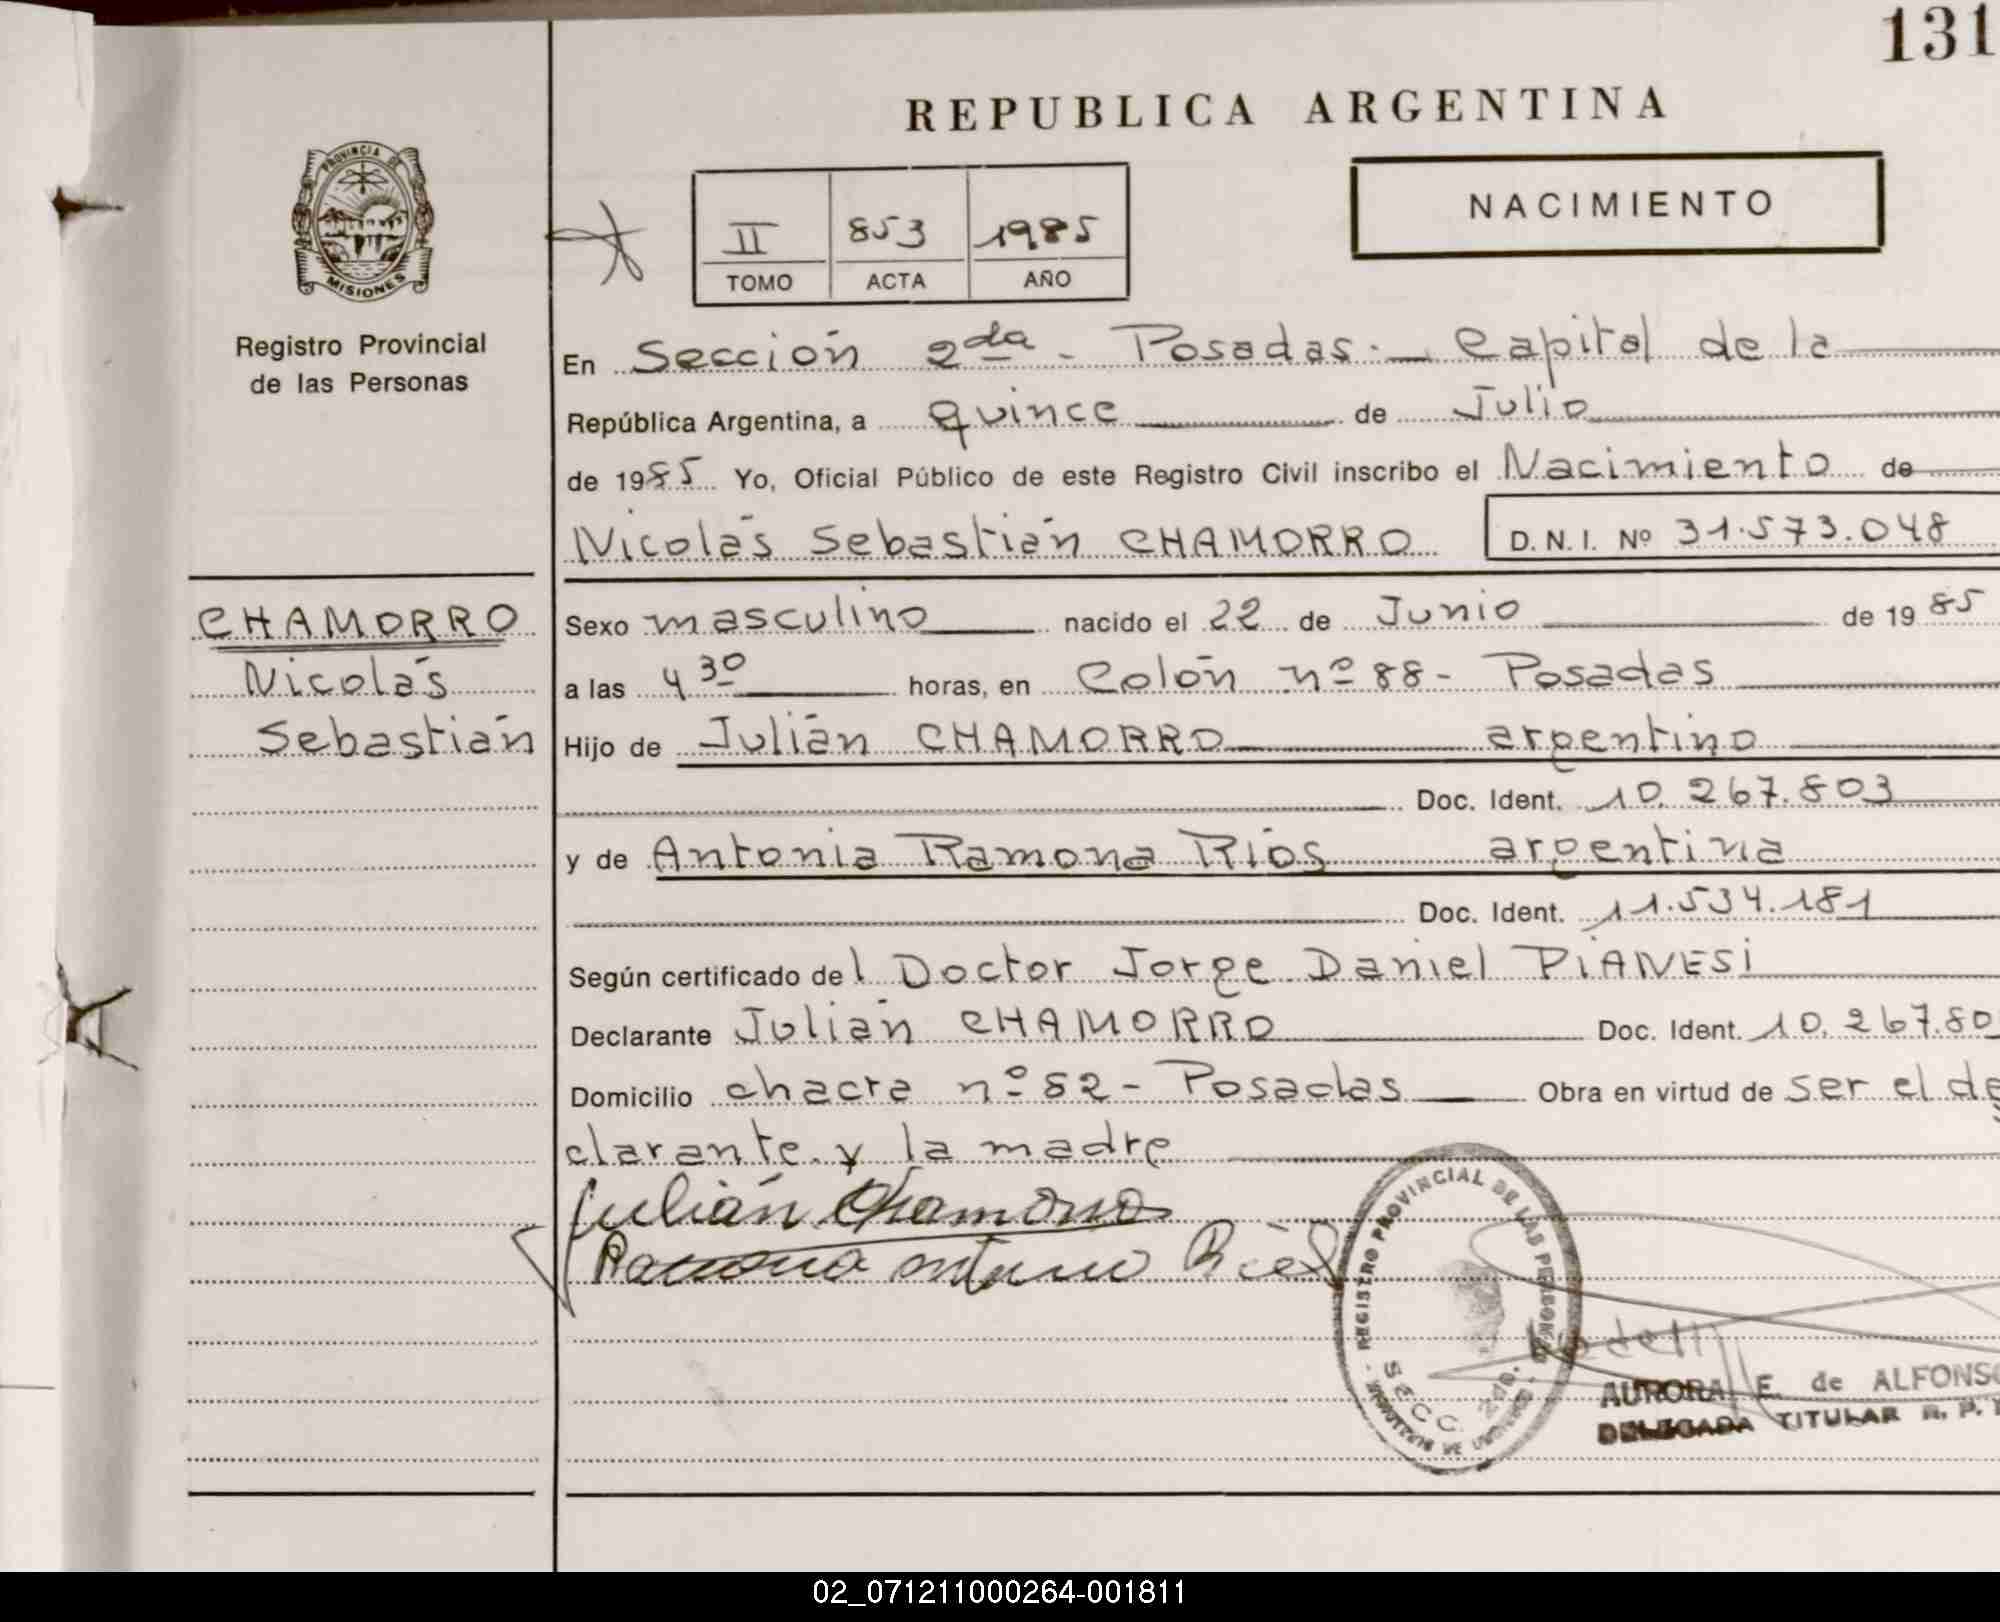 131
REPUBLICA ARGENTINA
PROVINCIA DE
MISIONES
Registro Provincial
de las Personas
II 853 1985
TOMO ACTA AÑO
NACIMIENTO
En Sección 2da - Posadas - Capital de la
República Argentina, a quince de Julio
de 1985 Yo, Oficial Público de este Registro Civil inscribo el Nacimiento de
Nicolás Sebastián CHAMORRO D. N. I. Nº 31.573.048
CHAMORRO
Nicolás
Sebastián
Sexo masculino nacido el 22 de Junio de 1985
a las 4 30 horas, en Colón nº 88 - Posadas
Hijo de Julián CHAMORRO argentino
Doc. Ident. 10.267.803
y de Antonia Ramona Ríos argentina
Doc. Ident. 11.534.181
Según certificado del Doctor Jorge Daniel PIANESI
Declarante Julián CHAMORRO Doc. Ident. 10.267.80
Domicilio chacra nº 82 - Posadas Obra en virtud de ser el de
clarante y la madre
Julián Chamorro
Ramona
REGISTRO PROVINCIAL DE LAS PERSONAS
SECC. 2da.
AURORA E. de ALFONSO
DELEGADA TITULAR R. P.
02_071211000264-001811